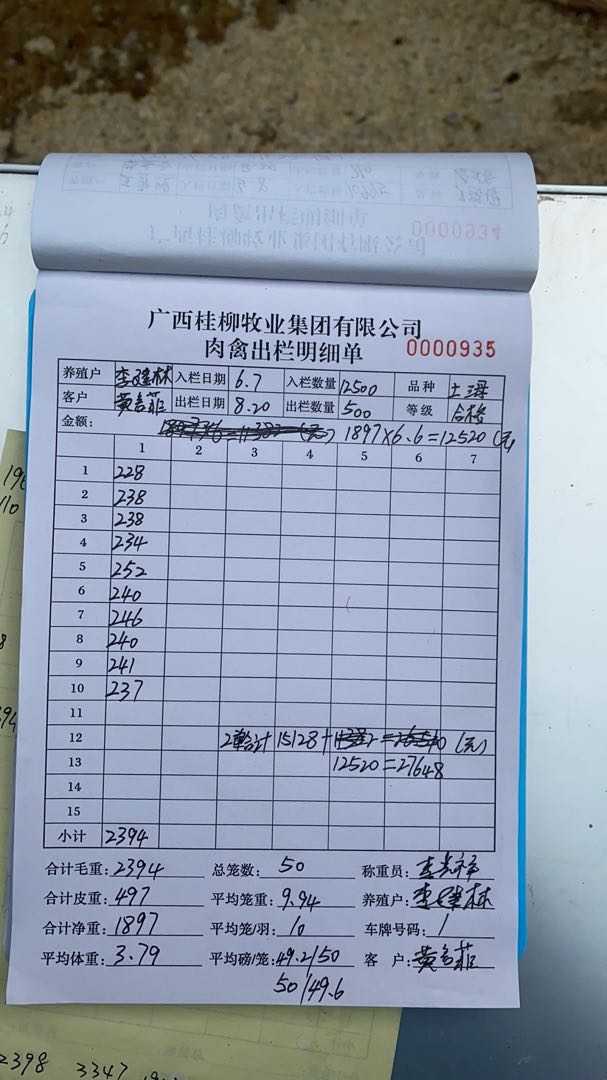 0000934
广西桂柳牧业集团有限公司
肉禽出栏明细单 0000935
养殖户 李建林 入栏日期 6.7 入栏数量 12500 品种 土
客户 黄 菲 出栏日期 8.20 出栏数量 500 等级 合格
金额: 1897×6.6=12520(元)
1 2 3 4 5 6 7
1 228
2 238
3 238
4 234
5 252
6 240
7 246
8 240
9 241
10 237
11
12 2 合计 15128+ (元)
13 12520=27648
14
15
小计 2394
合计毛重: 2394 总笼数: 50 称重员: 李 祥
合计皮重: 497 平均笼重: 9.94 养殖户: 李建林
合计净重: 1897 平均笼/羽: 10 车牌号码: 1
平均体重: 3.79 平均磅/笼: 49.2/50 客 户: 黄 菲
50/49.6
2398 3347